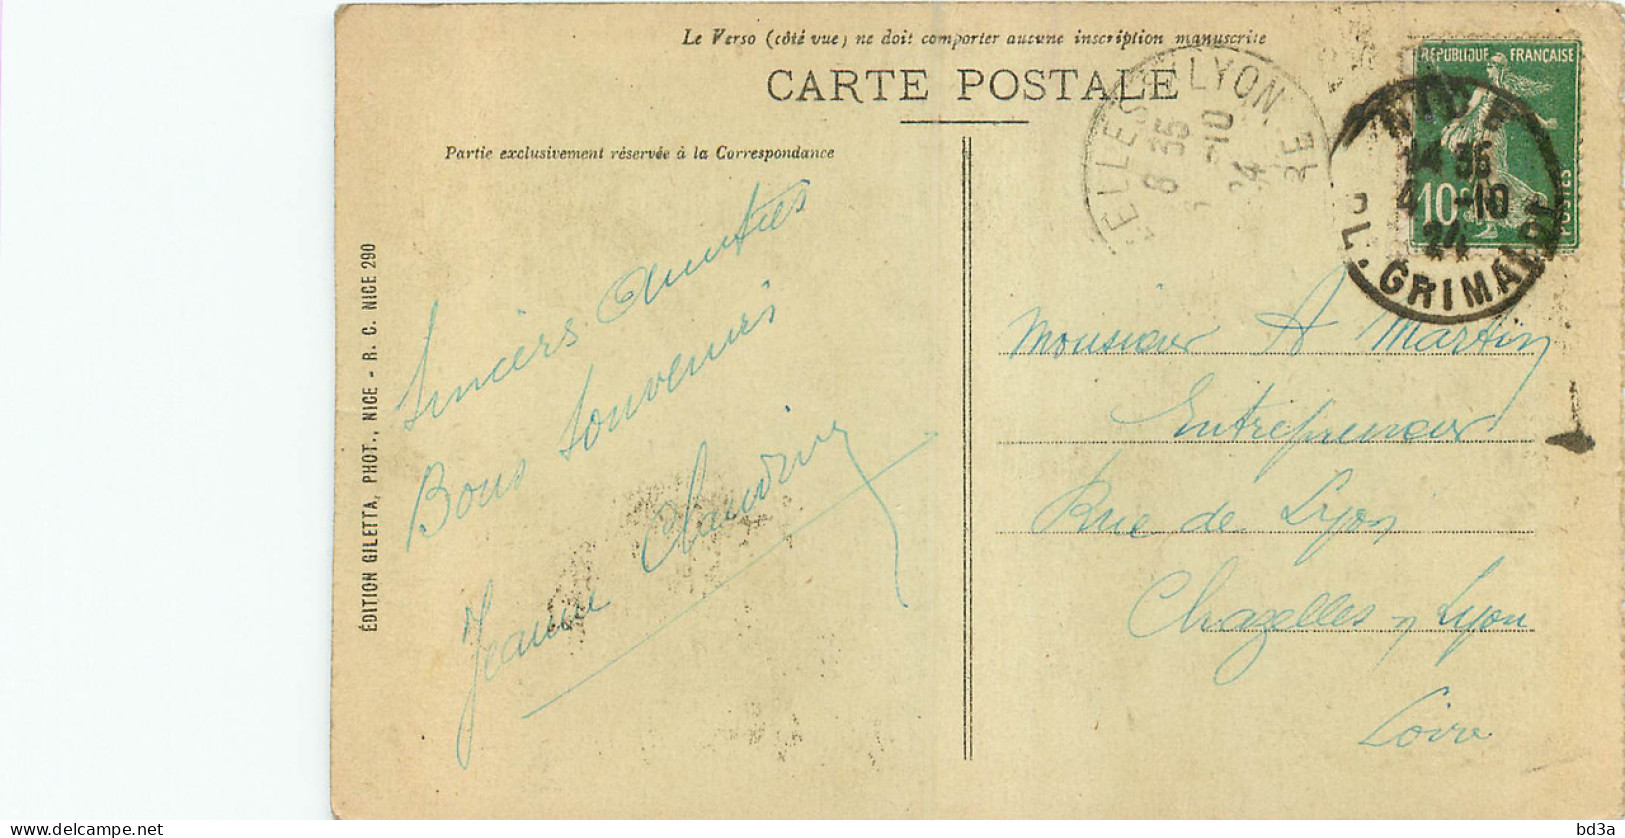 Le Verso (côté vue) ne doit comporter aucune inscription manuscrite
CARTE POSTALE
Partie exclusivement réservée à la Correspondance
ÉDITION GILETTA, PHOT., NICE - R. C. NICE 290
Sincères Amitiés
Bons Souvenirs
Jeanne
RÉPUBLIQUE FRANÇAISE
10c
POSTES
NICE
14 35
4 -10
24
PL. GRIMALDI
ELLES LYON
8 35
-10
24
Monsieur A Martin
Entrepreneur
Rue de Lyon
Chazelles s/ Lyon
Loire
bd3a